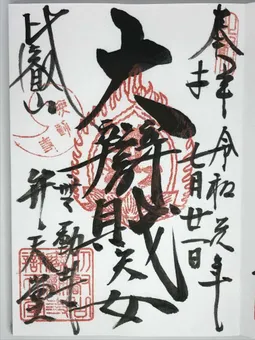 奉拝 令和元年
七月廿一日
大辯才天女
比叡山
無動寺
弁天堂